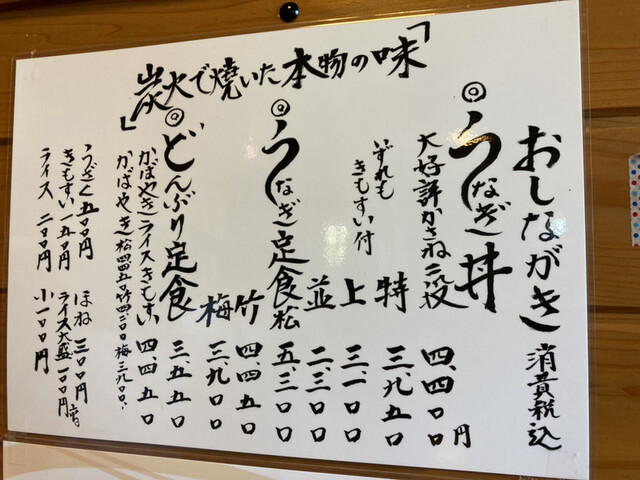 「炭火で焼いた本物の味」
おしながき 消費税込
◎うなぎ丼
大好評かさね二段 四、四〇〇円
特 三、九五〇
いずれもきもすい付
上 三、一〇〇
並 二、三〇〇
◎うなぎ定食 松 五、三〇〇
竹 四四五〇
梅 三、九〇〇
◎どんぶり定食 三、五五〇
かばやきライスきもすい 四、四五〇
かばやき 松四四五〇 竹四二〇〇 梅三九〇〇
うざく 五〇〇円 ほね 三〇〇円
きもすい 一五〇円 ライス大盛 一〇〇円
ライス 二〇〇円 小一〇〇円